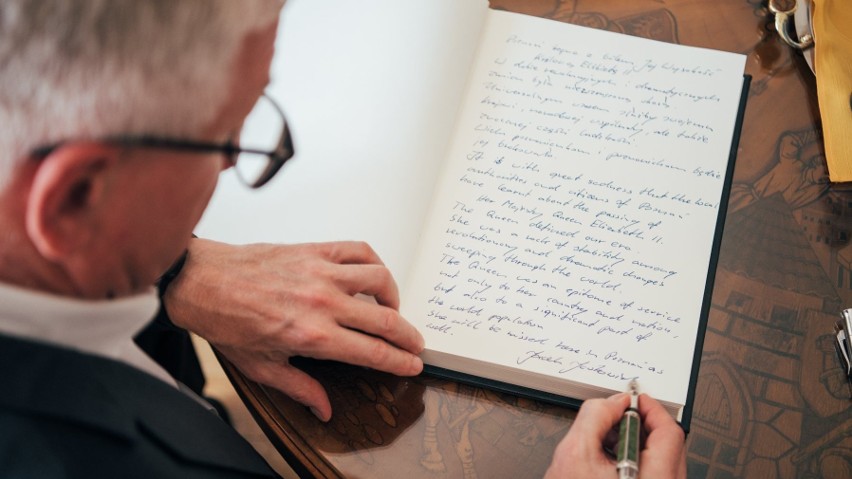 Poznań żegna z bólem Jej Wysokość
Królową Elżbietę II.
W dobie rewolucyjnych i dramatycznych
zmian była niezmienną ostoją
Uniwersalnym wzorem służby swojemu
krajowi, narodowej wspólnoty, ale także
znacznej części ludzkości.
Wielu poznaniankom i poznaniakom będzie
jej brakowało
It is with great sadness that the local
authorities and citizens of Poznań
have learnt about the passing of
Her Majesty Queen Elizabeth II.
The Queen defined our era.
She was a rock of stability among
revolutionary and dramatic changes
sweeping through the world.
The Queen was an epitome of service
not only to her country and nation,
but also to a significant part of
the world population
She will be missed here in Poznań as
well.
Jacek Jaśkowiak